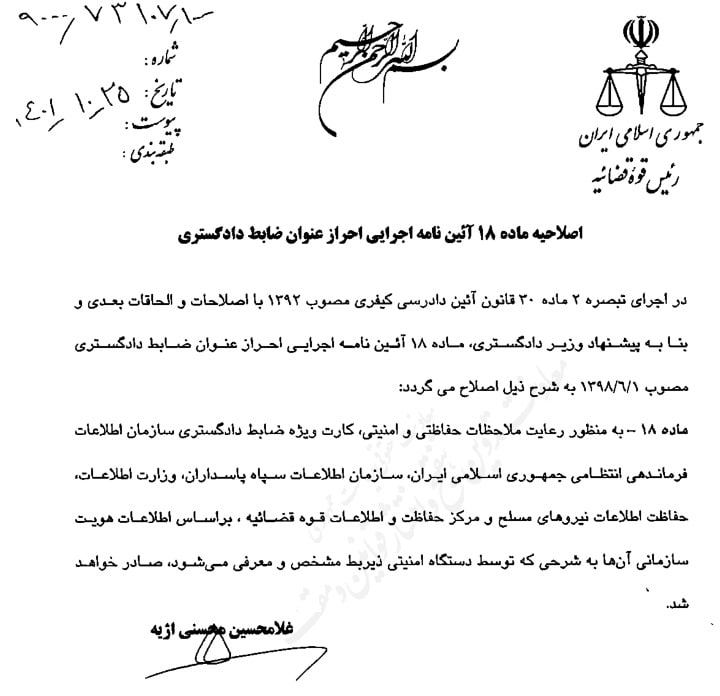 ۹۰۰۰/۷۳۱۰۷/۱۰۰
شماره :
تاریخ : ۱۴۰۱/۱۰/۲۵
پیوست :
طبقه‌بندی :
بسم الله الرحمن الرحیم
جمهوری اسلامی ایران
رئیس قوهٔ قضائیه
اصلاحیه ماده ۱۸ آئین نامه اجرایی احراز عنوان ضابط دادگستری
در اجرای تبصره ۲ ماده ۳۰ قانون آئین دادرسی کیفری مصوب ۱۳۹۲ با اصلاحات و الحاقات بعدی و
بنا به پیشنهاد وزیر دادگستری، ماده ۱۸ آئین نامه اجرایی احراز عنوان ضابط دادگستری
مصوب ۱۳۹۸/۶/۱ به شرح ذیل اصلاح می گردد:
ماده ۱۸ – به منظور رعایت ملاحظات حفاظتی و امنیتی، کارت ویژه ضابط دادگستری سازمان اطلاعات
فرماندهی انتظامی جمهوری اسلامی ایران، سازمان اطلاعات سپاه پاسداران، وزارت اطلاعات،
حفاظت اطلاعات نیروهای مسلح و مرکز حفاظت و اطلاعات قوه قضائیه ، براساس اطلاعات هویت
سازمانی آن‌ها به شرحی که توسط دستگاه امنیتی ذیربط مشخص و معرفی می‌شود، صادر خواهد
شد.
غلامحسین محسنی اژیه